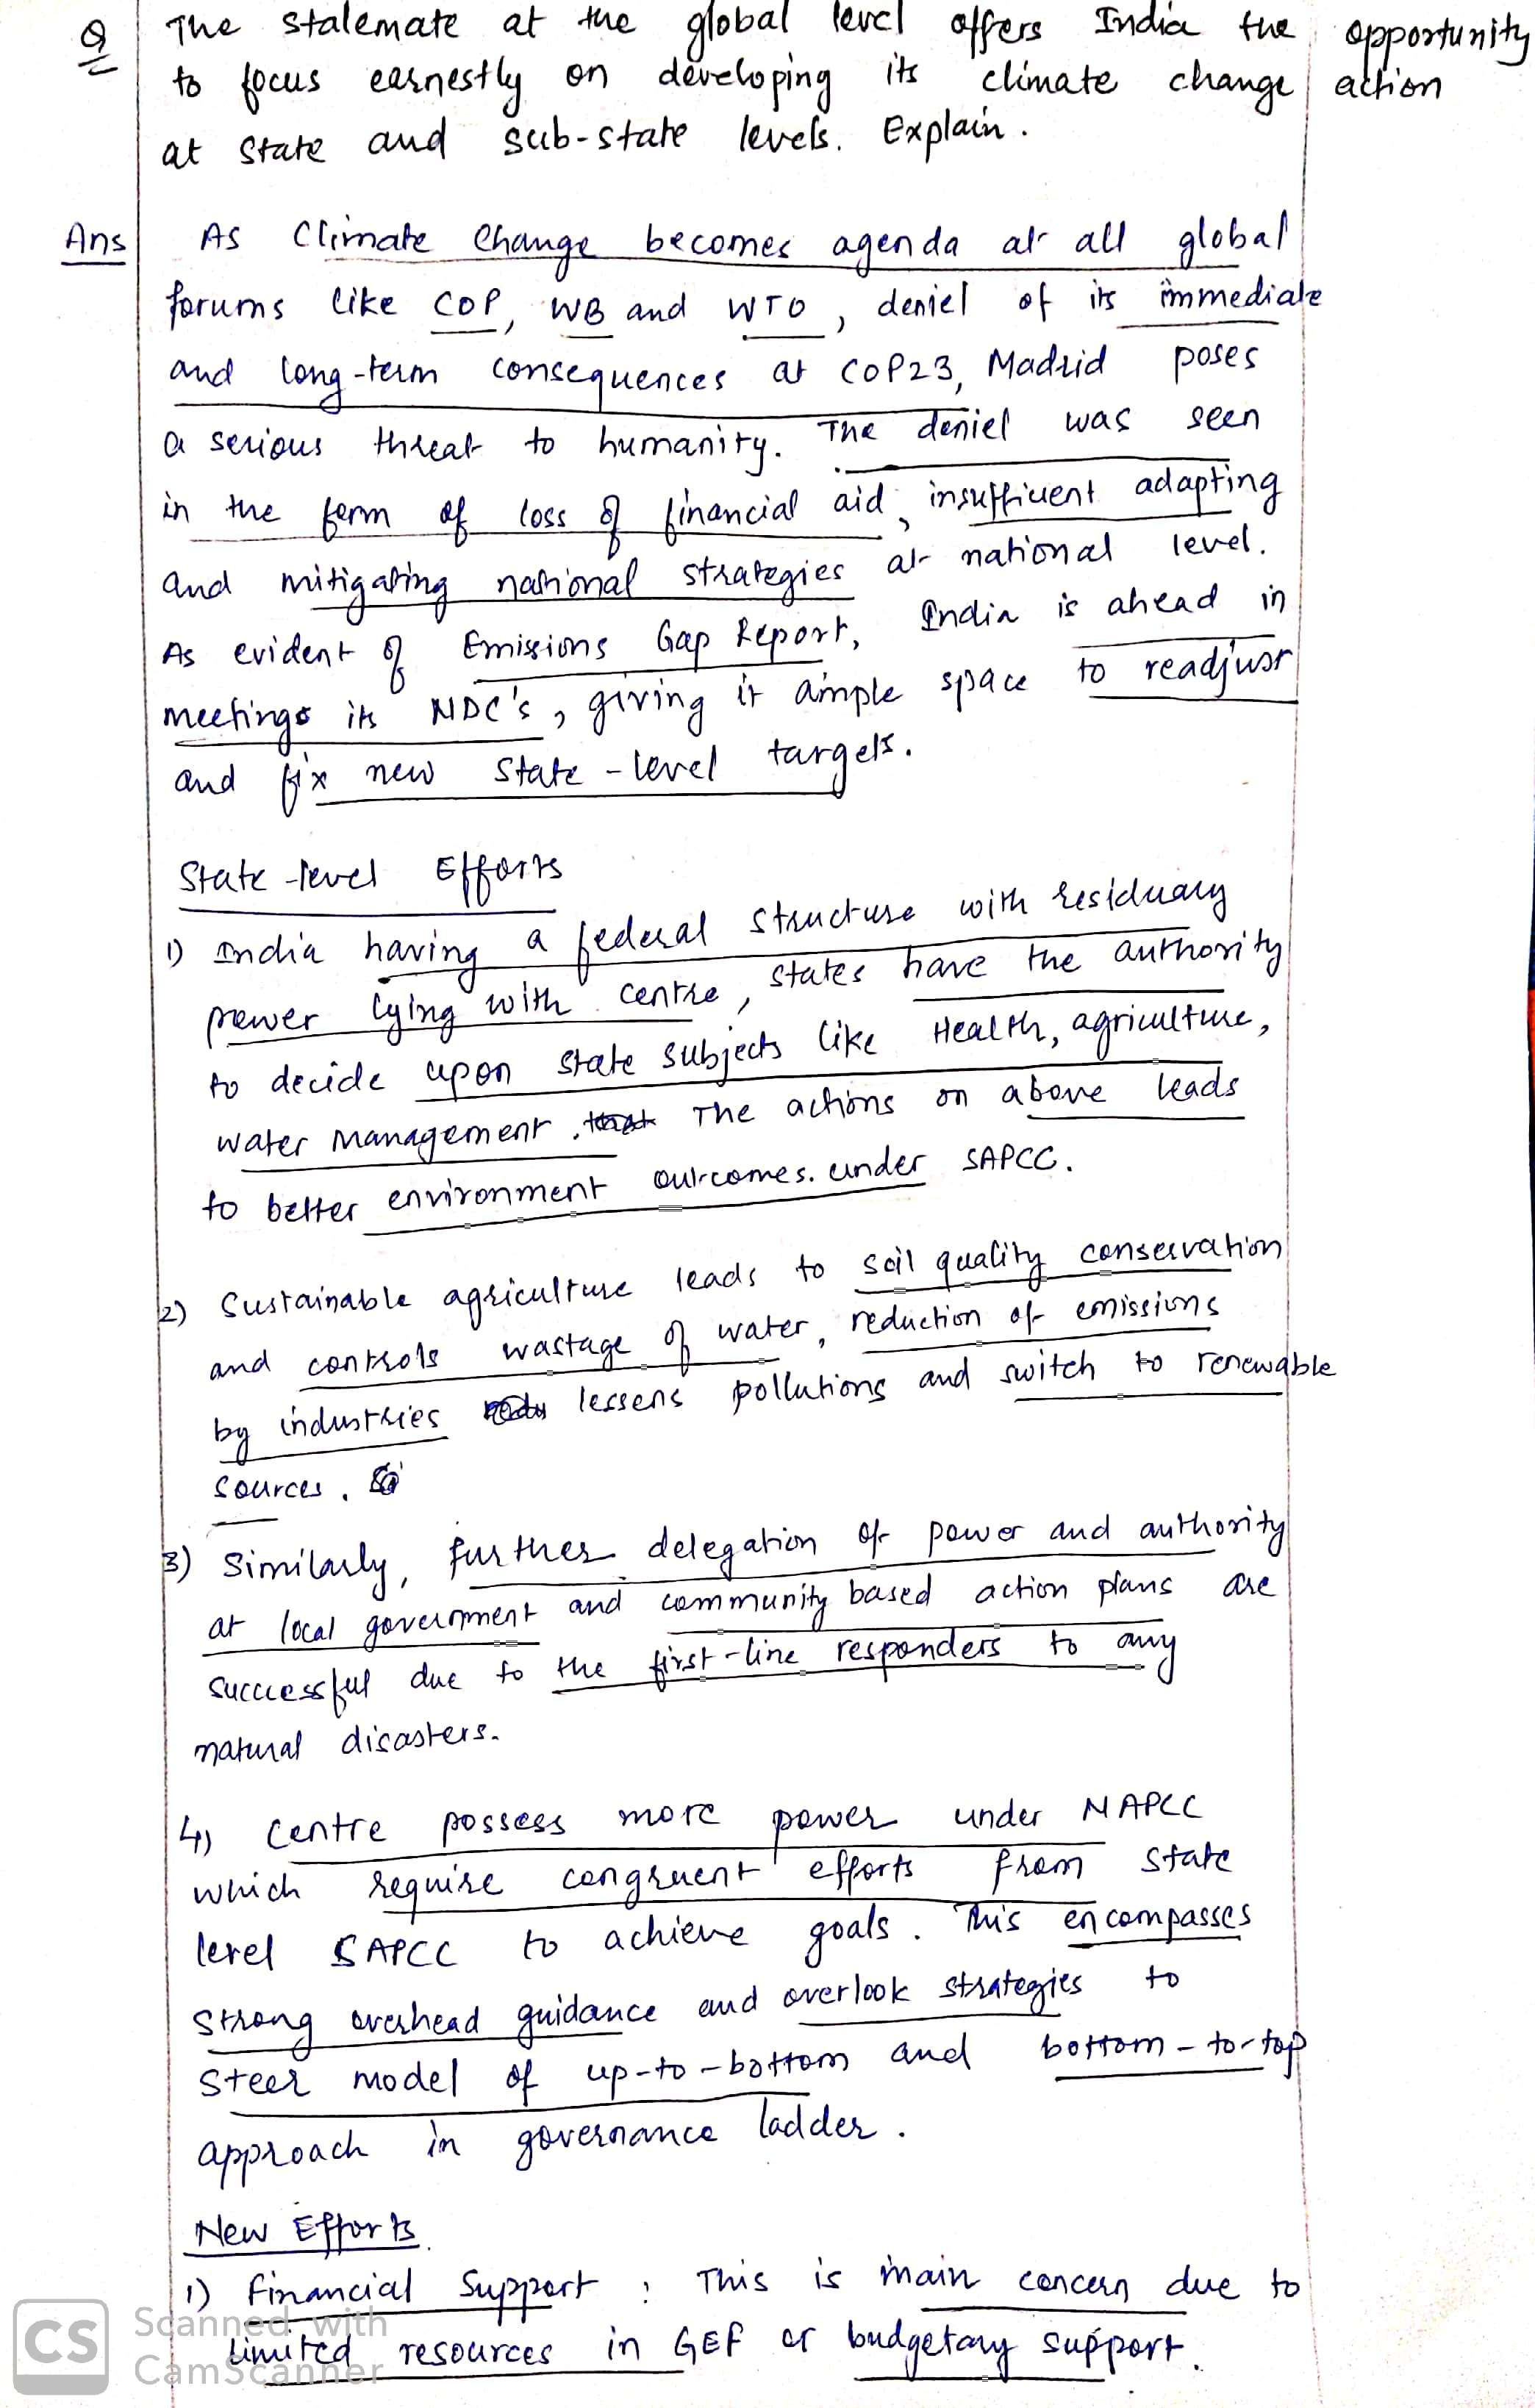 Q The stalemate at the global level offers India the opportunity
to focus earnestly on developing its climate change action
at state and sub-state levels. Explain.
Ans As Climate Change becomes agenda at all global
forums like COP, WB and WTO, deniel of its immediate
and long-term consequences at COP23, Madrid poses
a serious threat to humanity. The deniel was seen
in the form of loss of financial aid, insufficient adapting
and mitigating national strategies at national level.
As evident of Emissions Gap Report, India is ahead in
meetings its NDC's, giving it ample space to readjust
and fix new state-level targets.
State-level Efforts
1) India having a federal structure with residuary
power lying with centre, states have the authority
to decide upon state subjects like Health, agriculture,
water management. The actions on above leads
to better environment outcomes. under SAPCC.
2) Sustainable agriculture leads to soil quality conservation
and controls wastage of water, reduction of emissions
by industries lessens pollutions and switch to renewable
sources.
3) Similarly, further delegation of power and authority
at local government and community based action plans are
successful due to the first-line responders to any
natural disasters.
4) Centre possess more power under NAPCC
which require congruent efforts from state
level SAPCC to achieve goals. This encompasses
strong overhead guidance and overlook strategies to
steer model of up-to-bottom and bottom-to-top
approach in governance ladder.
New Efforts
1) Financial Support : This is main concern due to
limited resources in GEF or budgetary support.
CS Scanned with
CamScanner